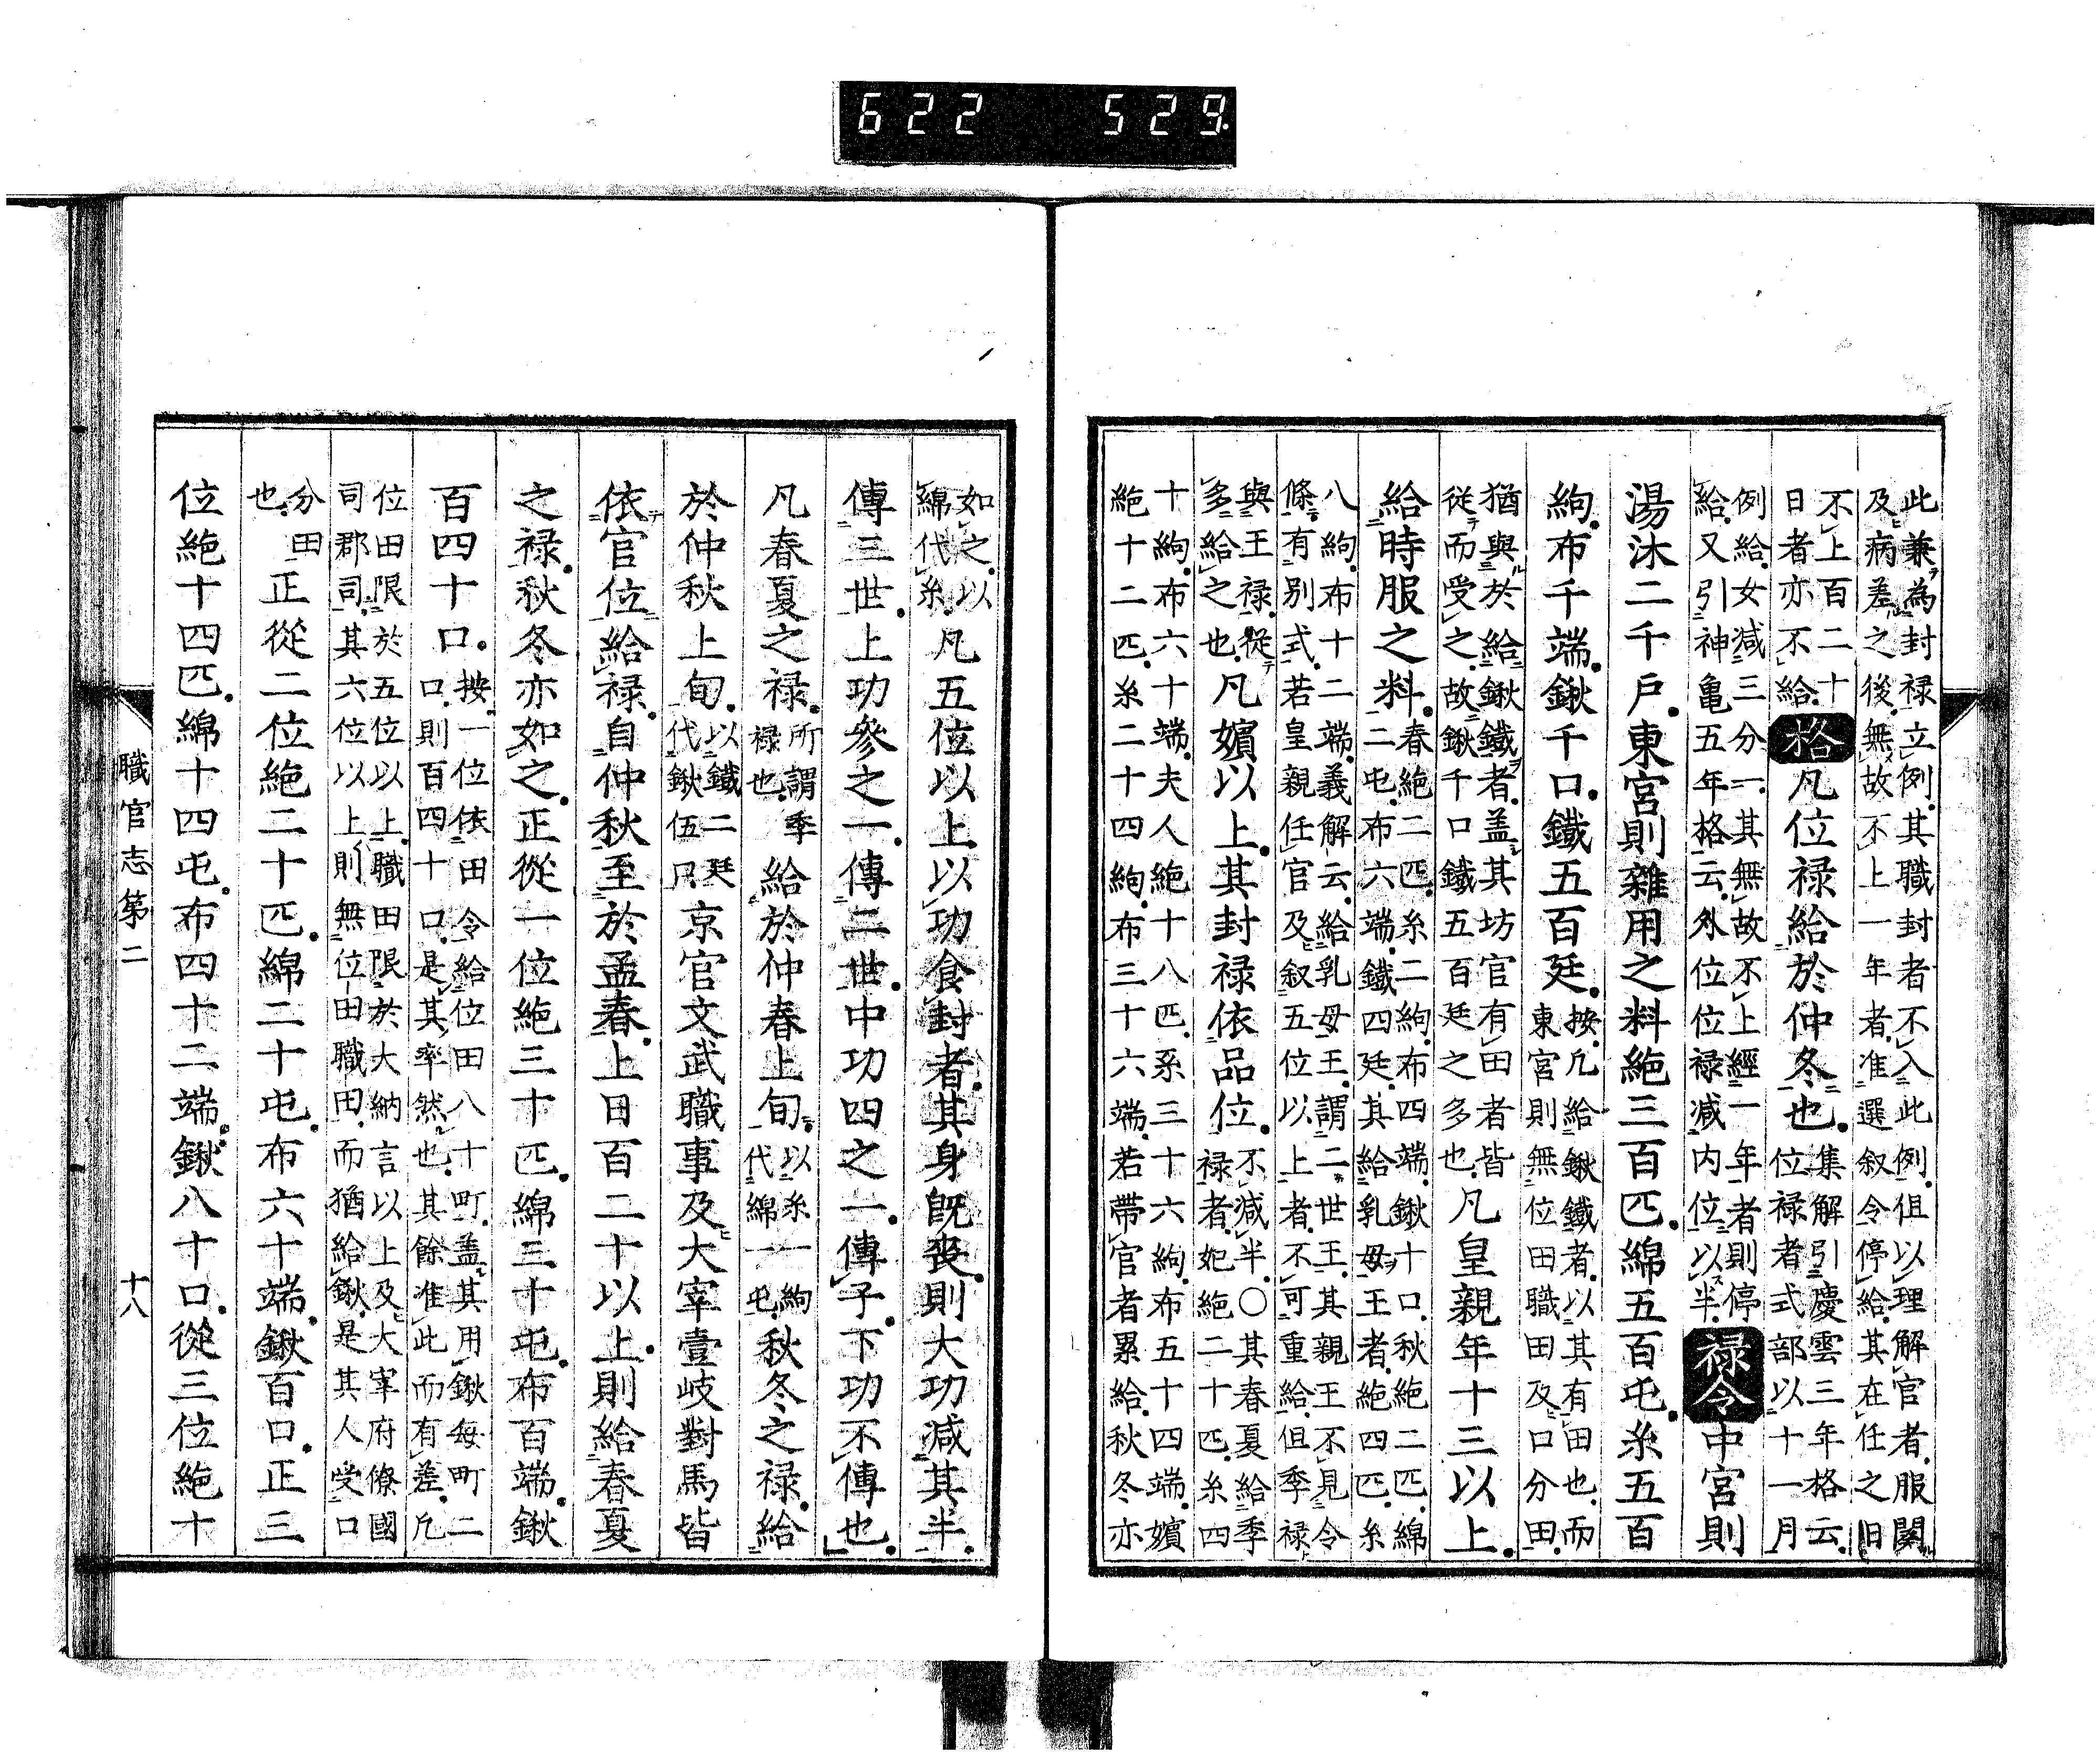 622 529
此兼為封禄立例其職封者不入此例但以理解官者服闋
及病差之後無故不上一年者准選叙令停給其在任之日
不上百二十
日者亦不給
格凡位禄給於仲冬也
集解引慶雲三年格云
位禄者式部以十一月
例給女減三分一其無故不上經一年者則停
給又引神亀五年格云外位位禄減内位以半
禄令中宮則
湯沐二千戸東宮則雜用之料絁三百匹綿五百屯糸五百
絇布千端鍬千口鐵五百廷
按凡給鍬鐵者以其有田也而
東宮則無位田職田及口分田
猶與於給鍬鐵者盖其坊官有田者皆
従而受之故鍬千口鐵五百廷之多也
凡皇親年十三以上
給時服之料
春絁二匹糸二絇布四端鍬十口秋絁二匹綿
二屯布六端鐵四廷其給乳母王者絁四匹糸
八絇布十二端義解云給乳母王謂二世王其親王不見令
條有别式若皇親任官及叙五位以上者不可重給但季禄
與王禄従
多給之也
凡嬪以上其封禄依品位
不減半○其春夏給季
禄者妃絁二十匹糸四
十絇布六十端夫人絁十八匹糸三十六絇布五十四端嬪
絁十二匹糸二十四絇布三十六端若帶官者累給秋冬亦
如之以
綿代糸
凡五位以上以功食封者其身旣喪則大功減其半
傳三世上功參之一傳二世中功四之一傳子下功不傳也
凡春夏之禄
所謂季
禄也
給於仲春上旬
以糸一絇
代綿一屯
秋冬之禄給
於仲秋上旬
以鐵二廷
代鍬伍口
京官文武職事及大宰壹岐對馬皆
依官位給禄自仲秋至於孟春上日百二十以上則給春夏
之禄秋冬亦如之正從一位絁三十匹綿三十屯布百端鍬
百四十口
按一位依田令給位田八十町盖其用鍬每町二
口則百四十口是其率然也其餘准此而有差凡
位田限於五位以上職田限於大納言以上及大宰府僚國
司郡司其六位以上則無位田職田而猶給鍬是其人受口
分田
也
正從二位絁二十匹綿二十屯布六十端鍬百口正三
位絁十四匹綿十四屯布四十二端鍬八十口從三位絁十
職官志第二
十八